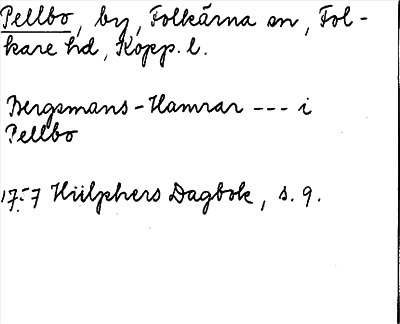 Pellbo, by, Folkärna sn, Fol-
kare hd, Kopp. l.
Bergsmans-Hamrar --- i
Pellbo
1757 Hülphers Dagbok, s. 9.